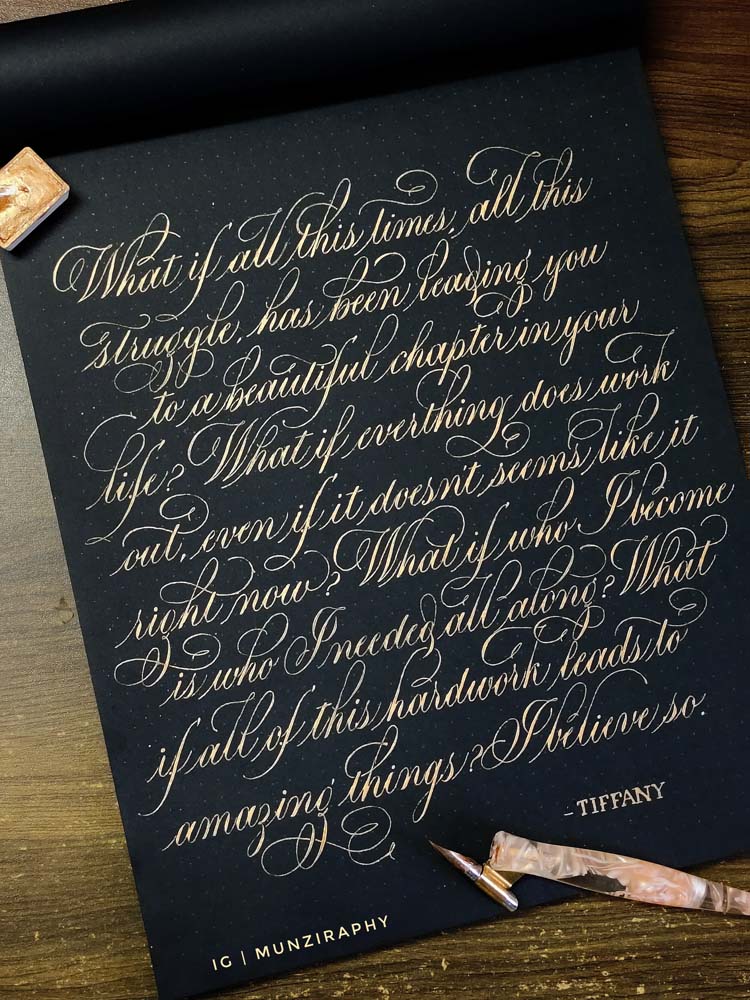 What if all this times, all this
struggle, has been leading you
to a beautiful chapter in your
life? What if everthing does work
out, even if it doesn't seems like it
right now? What if who I become
is who I needed all along? What
if all of this hardwork leads to
amazing things? I believe so.
- TIFFANY
IG | MUNZIRAPHY